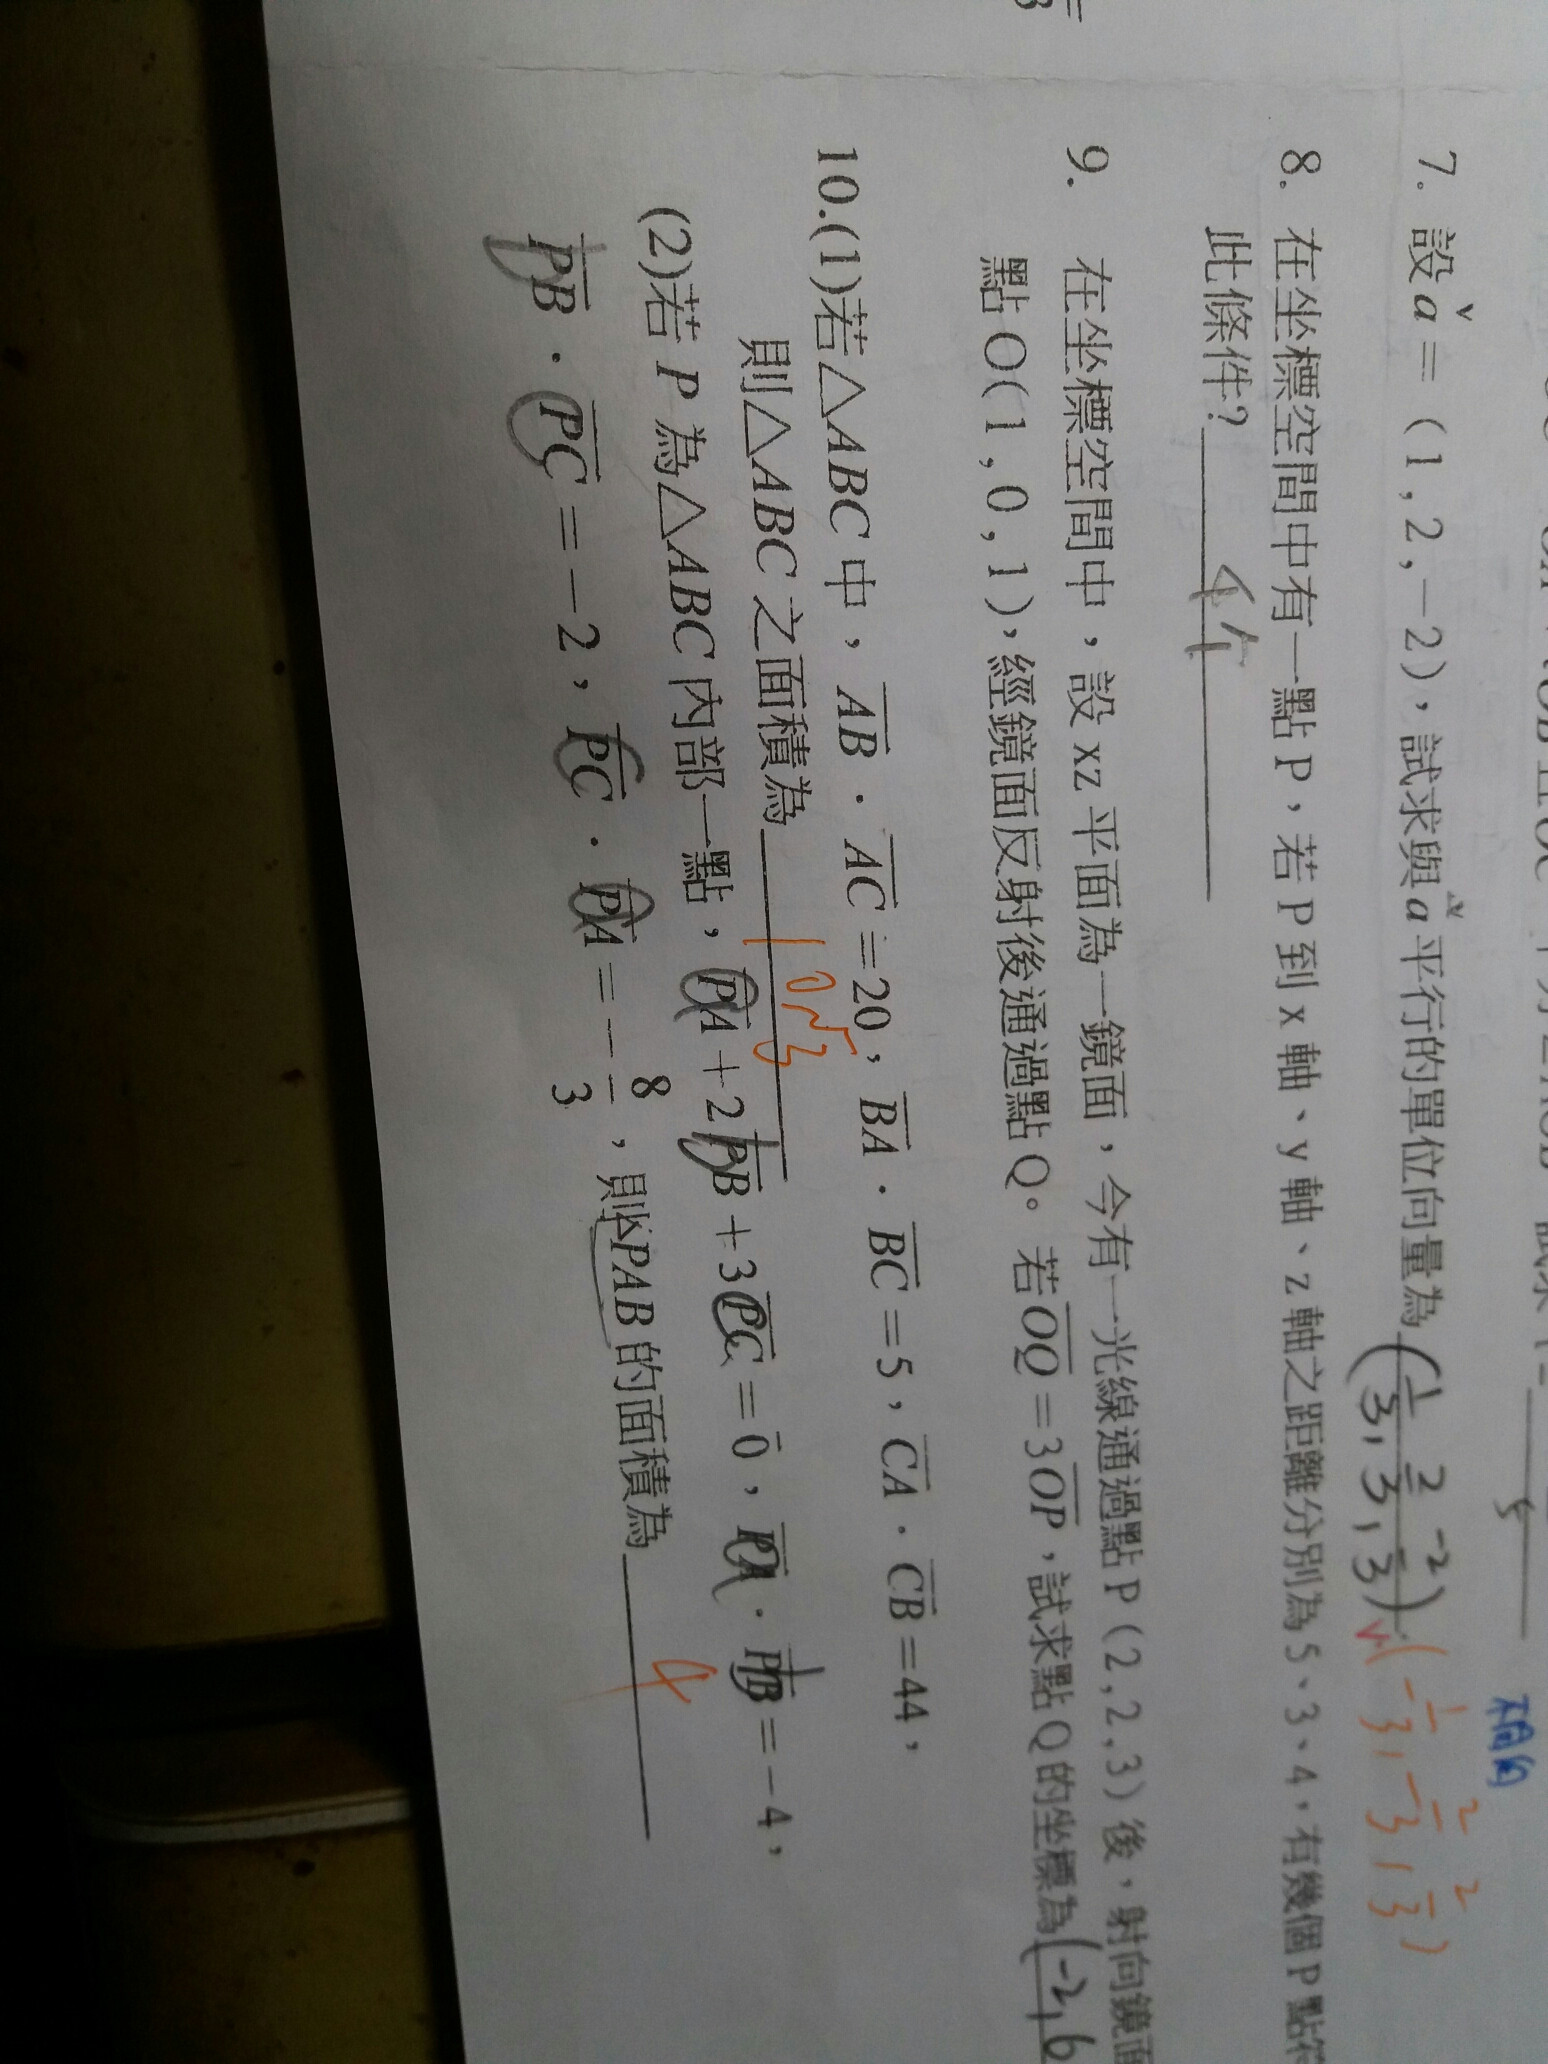 7. 設a = (1, 2, -2), 試求與a平行的單位向量為 (1/3, 2/3, -2/3), (-1/3, -2/3, 2/3)
8. 在坐標空間中有一點 P，若 P 到 x 軸、y 軸、z 軸之距離分別為 5、3、4，有幾個 P 點符
此條件? 4 4
9. 在坐標空間中，設 xz 平面為一鏡面，今有一光線通過點 P (2, 2, 3) 後，射向鏡面
點 O(1, 0, 1)，經鏡面反射後通過點 Q。若OQ = 3OP，試求點 Q 的坐標為 (-2, 6
10.(1)若△ABC 中，AB · AC = 20，BA · BC = 5，CA · CB = 44，
則△ABC 之面積為 10√3
(2)若 P 為△ABC 內部一點，PA + 2PB + 3PC = 0，PA · PB = -4，
PB · PC = -2，PC · PA = -8/3，則△PAB 的面積為 4